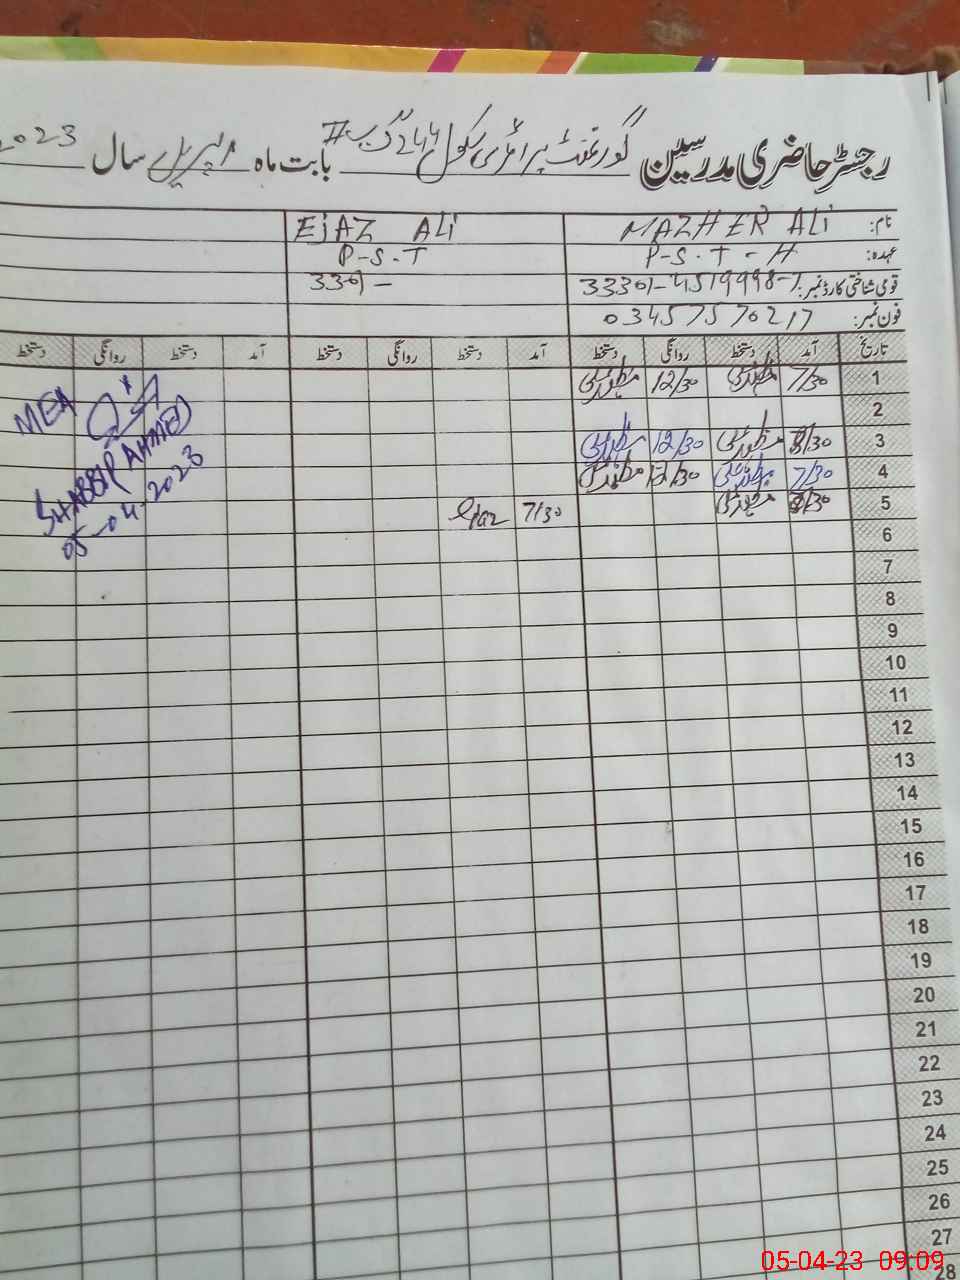 رجسٹر حاضری مدرسین گورنمنٹ پرائمری سکول 244 گ ب # بابت ماہ اپریل سال 2023
نام: MAZHER ALI EJAZ ALI
عہدہ: P-S.T-H P-S.T
قومی شناختی کارڈ نمبر: 33301-4519998-7 3301-
فون نمبر: 03457570217
تاریخ آمد دستخط روانگی دستخط آمد دستخط روانگی دستخط آمد دستخط روانگی دستخط
1 7/30 12/30
2
3 8/30 12/30
4 7/30 12/30
5 8/30 7/30 Ejaz
6
7
8
9
10
11
12
13
14
15
16
17
18
19
20
21
22
23
24
25
26
27
28
MEA
SHABBIR AHMED
05-04-2023
05-04-23 09:09